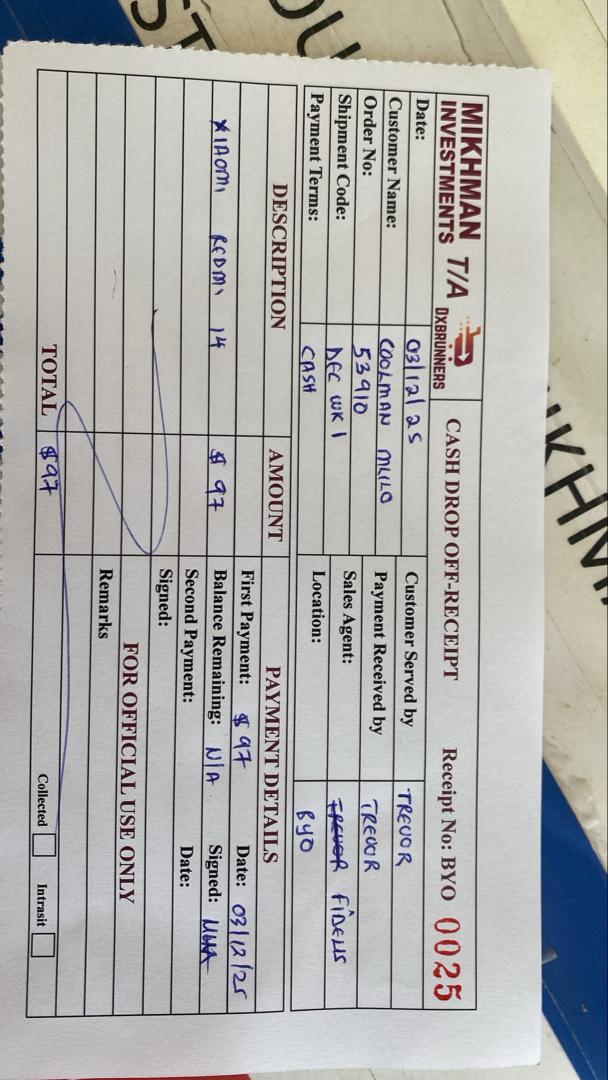 MIKHMAN
INVESTMENTS T/A DXBRUNNERS
CASH DROP OFF-RECEIPT Receipt No: BYO 0025
Date: 03/12/25 Customer Served by TREVOR
Customer Name: COOLMAN Payment Received by TREVOR
Order No: 53910 Sales Agent: TREVOR FIDELIS
Shipment Code: DEC WK 1 Location: BYO
Payment Terms: CASH
DESCRIPTION AMOUNT PAYMENT DETAILS
First Payment: $97 Date: 03/12/25
XIAOMI REDMI 14 $ 97 Balance Remaining: N/A Signed:
Second Payment: Date:
Signed:
FOR OFFICIAL USE ONLY
Remarks
TOTAL $97 Collected Intrasit